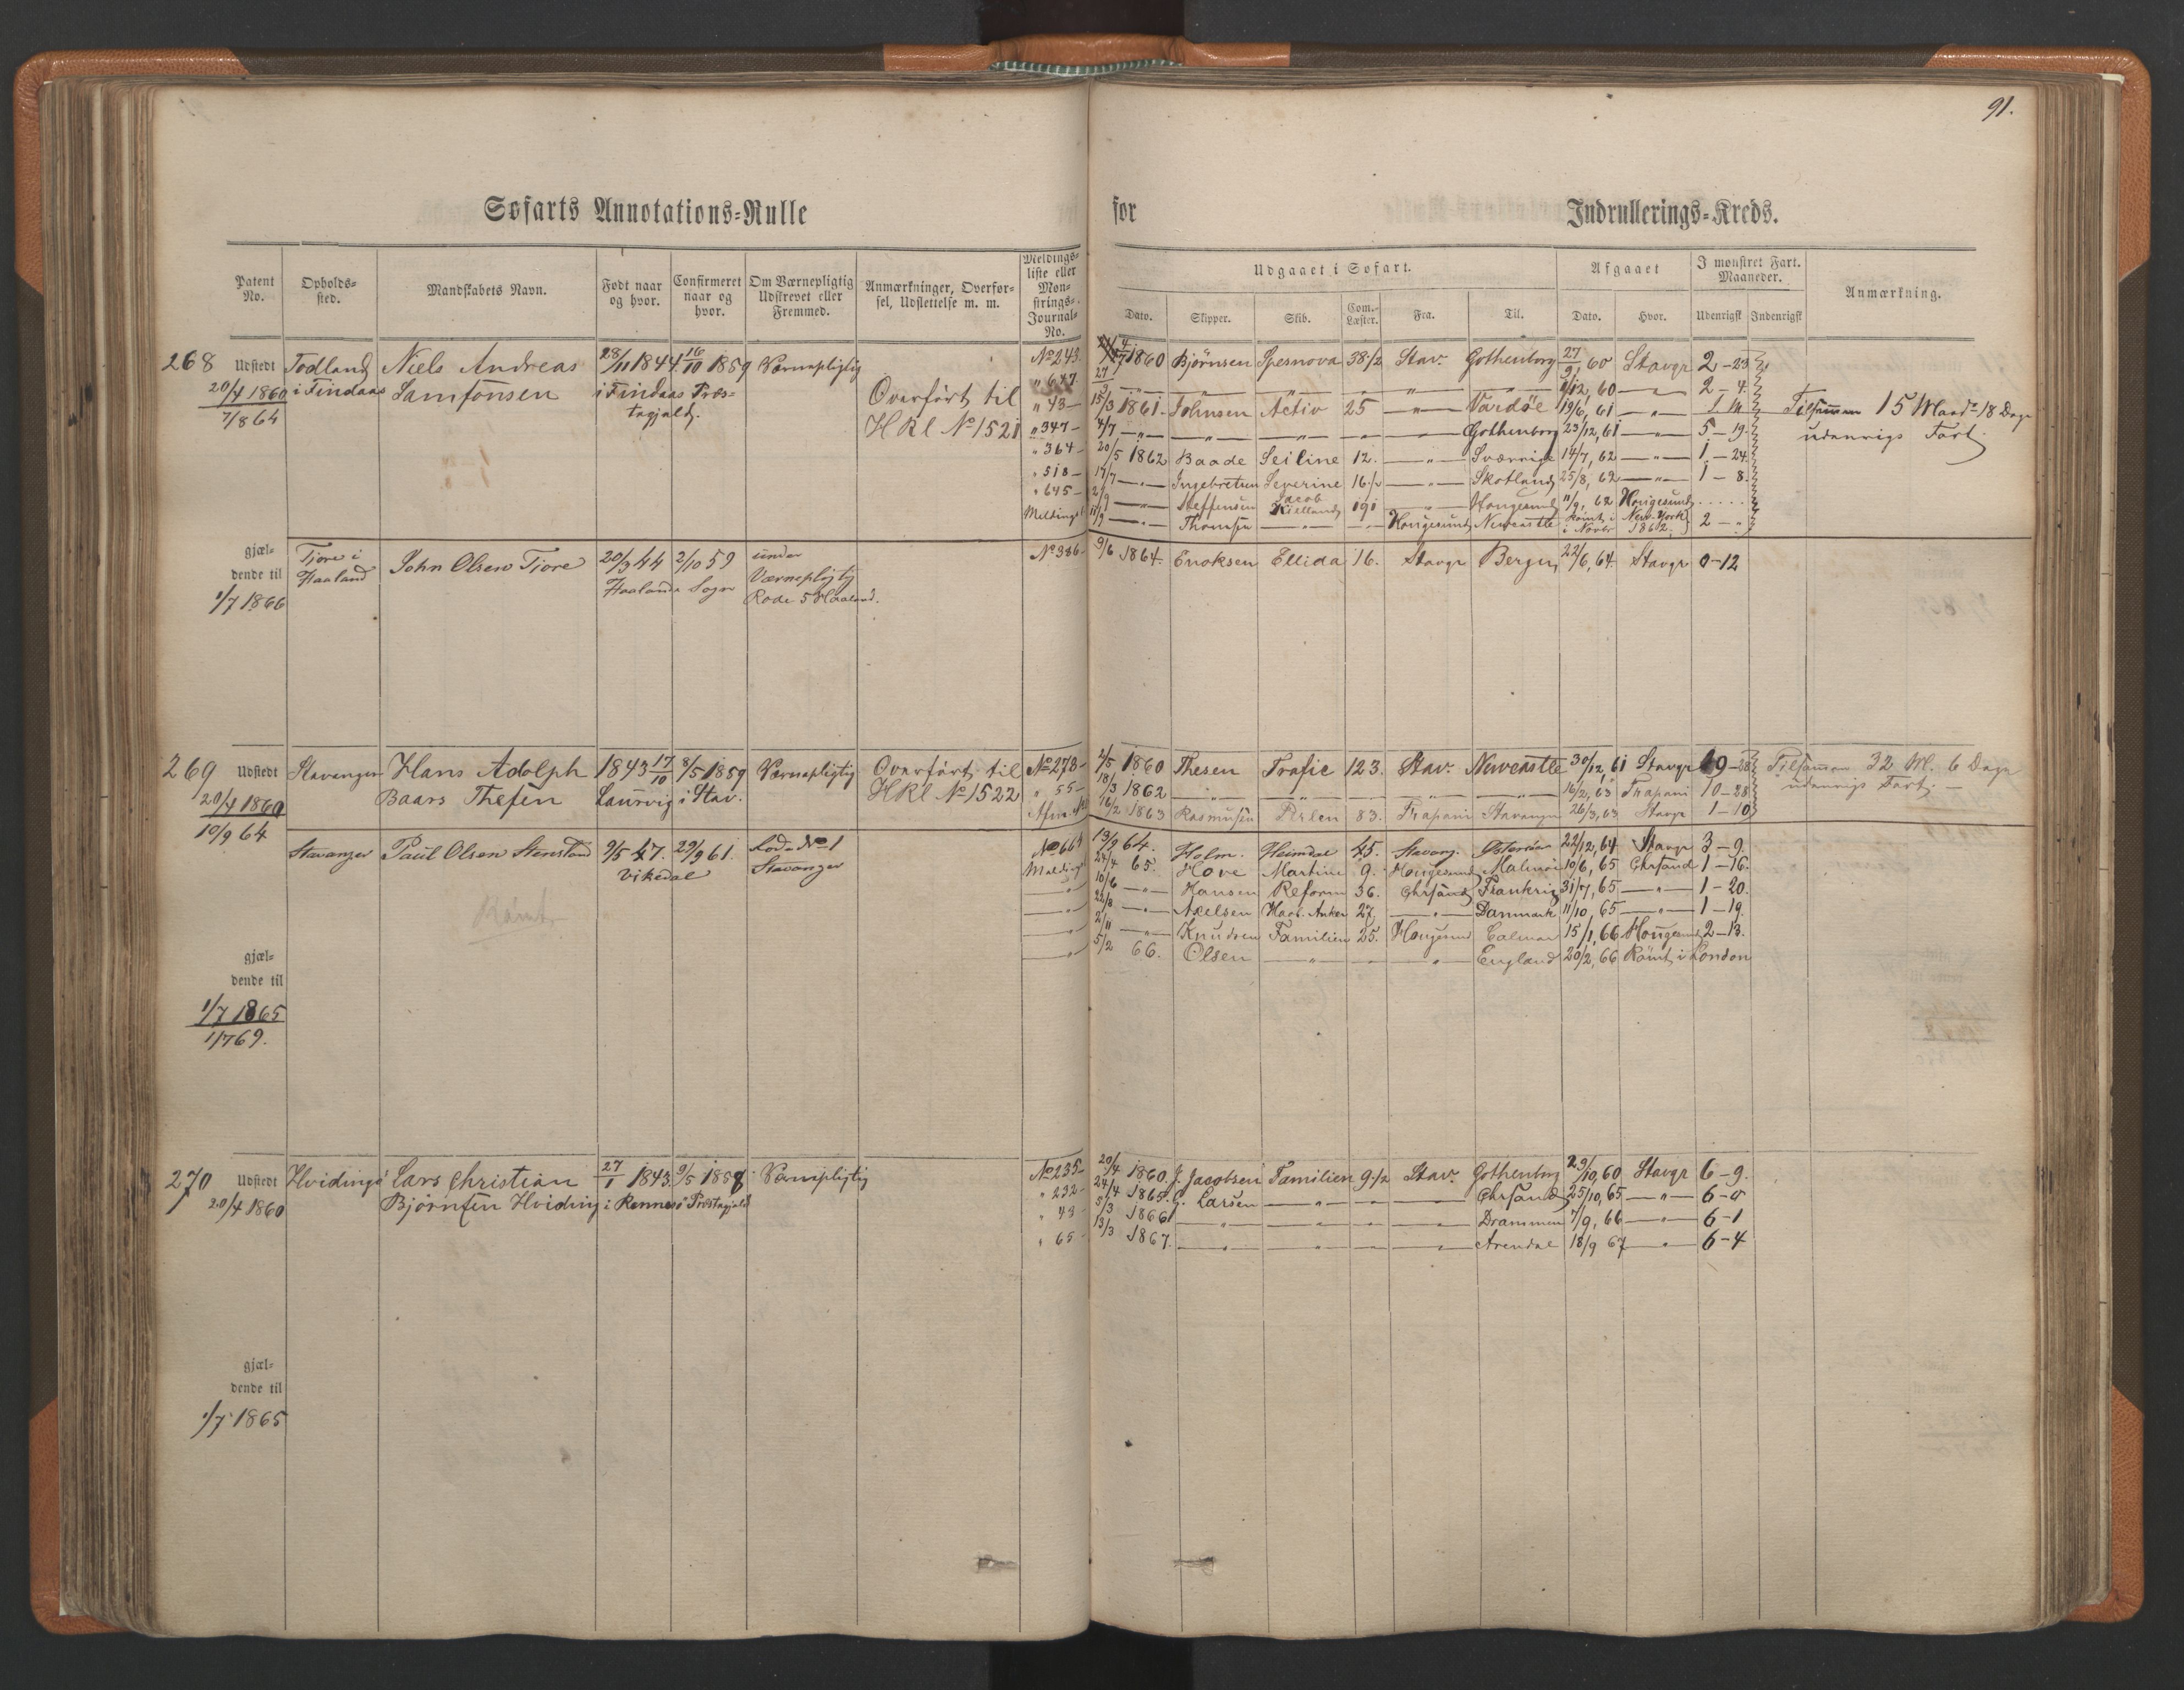 91.
Søfarts Annotations=Rulle for Indrullerings=Kreds.
Patent No. Opholds=sted. Mandskabets Navn. Født naar og hvor. Confirmeret naar og hvor. Om Værnepligtig Udskrevet eller Fremmed. Anmærkninger, Overførsel, Udslettelse m. m. Meldings=liste eller Mønstrings=Journal=No.
Udgaaet i Søfart. Afgaaet I mønstret Fart. Maaneder. Anmærkning.
Dato. Skipper. Skib. Com.=Læster. Fra. Til. Dato. Hvor. Udenrigsk Indenrigsk
268 Udstedt Todland Niels Andreas 28/11 1844 16/10 1859 Værnepligtig No 243. 4/7 1860 Bjørnsen Spesnova 38 1/2 Stav. Gothenborg 27/9, 60 Stavgr 2-23
20/4 1860 i Findaas Samsonsen i Findaas Præs= Overført til " 647 27/9 — " — " — " — " — 1/12, 60 — " — 2-4.
7/8 64 tegjeld. HRl No 1521 " 43 — 15/3 1861. Johnsen Activ 25 — " — Vardøe 19/6, 61 — " — Tilsammen 15 Maad. 18 Dage
" 347 — 4/7 — " — " — " — " — Gothenborg 23/12, 61 — " — 5-19. udenrigs Fart
" 364 — 20/5 1862 Baade Seiline 12. — " — Sverrige 14/7, 62 — " — 1-24.
" 518 — 14/7 — " — Ingebretsen Severine 16 1/2 — " — Skotland 25/8, 62 — " — 1-8.
" 645 — 2/9 — " — Steffensen Jacob Kielland 191 " Hougesund 11/9, 62 Hougesund .....
Meldingsl 11/9 — " — Thomsen — " — Hougesund Newcastle Rømt i New-York i Novbr 1862. 2 — "
gjæl=dende til Tjore i Haaland John Olsen Tjore 20/3 44 2/10 59 under No 386. 9/6 1864. Enoksen Ellida 16. Stavgr Bergen 22/6, 64. Stavgr 0-12
1/7 1866 Haalands Sogn Værnepligtig
Rode 5 Haaland.
269 Udstedt Stavanger Hans Adolph 1843 17/10 8/5 1859 Værnepligtig Overført til No 273 — 2/5 1860 Thesen Trafic 123. Stav. Newcastle 30/12, 61 Stavgr 19-28 Tilsammen 32 M. 6 Dage
20/4 1860 Baars Thesen Laurvig i Stav. HRl No 1522 " 55 — 18/3 1862 — " — " — " — " — 16/2, 63 Trapani 10-28 udenrigs Fart. —
10/9 64 16/2 1863 Rasmusen Perlen 83. Trapani Stavanger 26/3, 63 Stavgr 1-10
Stavanger Paul Olsen Stensland 9/5 47. 29/9 61. Rode No 1 No 664 13/9 64. Holm. Heimdal 45. Stavang. Østersøen 22/12, 64 Stavgr 3-9.
Vikedal Stavanger Meldingsl 24/4 65. Hove Martine 9. Hougesund Malmø 10/6, 65 Chrsand 1-16.
— " — 10/6 — " — Hansen Reform 36. Chrsand Frankrig 31/7, 65 — " — 1-20.
Rømt — " — 22/8 — " — Axelsen Haabets Anker 27, — " — Danmark 11/10, 65 — " — 1-19.
— " — 2/11 — " — Knudsen Familien 25. Hougesund Calmar 15/1, 66 Hougesund 2-13.
— " — 5/2 66. Olsen — " — " — England 20/2, 66 Rømt i London
gjæl=dende til
1/7 1865
1/7 69.
270 Udstedt Hvidingø Lars Christian 27/1 1843. 9/5 1858 Værnepligtig No 235 — 20/4 1860. J. Jacobsen Familien 9 1/2 Stav. Gothenborg 29/10, 60 Stavgr 6-9.
20/4 1860 Bjørnsen Hviding i Rennesø Præstegjeld " 232 — 24/4 1865. G. Larsen — " — " — Chrsand 25/10, 65 — " — 6-0
" 43 — 5/3 1866 — " — " — " — Drammen 7/9, 66 — " — 6-1
" 65 — 13/3 1867. — " — " — " — Arendal 18/9 67 — " — 6-4
gjæl=dende til
1/7 1865